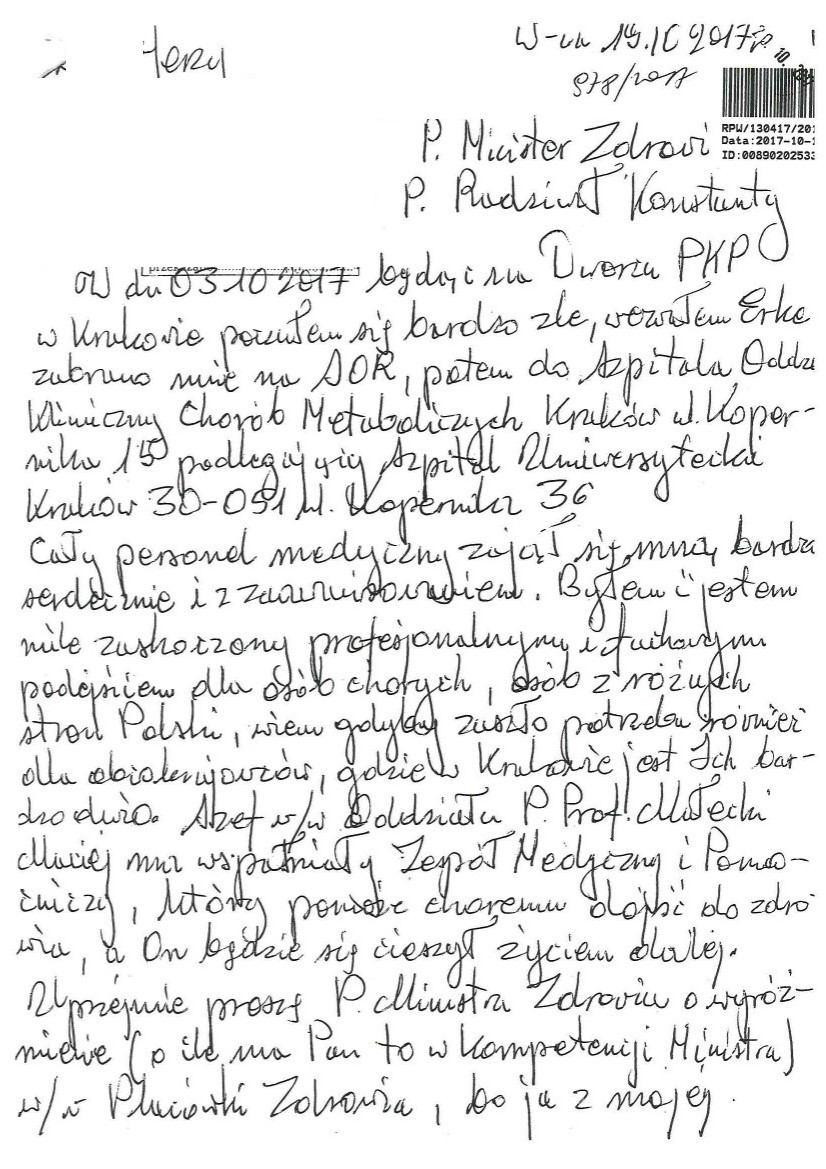 Jerzy
W-wa 19.10 2017
978/2017
RPW/130417/201
Data:2017-10-1
ID:0089020253
P. Minister Zdrowi
P. Radziwił Konstanty
W dn 03 10 2017 będąc na Dworcu PKP
w Krakowie poczułem się bardzo źle, wezwałem Erkę
zabrano mnie na SOR, potem do Szpitala Oddzia
Kliniczny Chorób Metabolicznych Kraków ul. Koper-
nika 15 podlegający Szpital Uniwersytecki
Kraków 30-091 ul. Kopernika 36
Cały personel medyczny zajął się mną, bardzo
serdecznie i z zaawansowaniem. Byłem i jestem
mile zaskoczony profesjonalnym i fachowym
podejściem dla osób chorych, osób z różnych
stron Polski, wiem gdyby zaszło potrzeba również
dla obcokrajowców, gdzie w Krakowie jest Ich bar-
dzo dużo. Szef w/w Oddziału P. Prof. Małecki
Maciej ma wspaniały Zespół Medyczny i Pomo-
cniczy, który pomoże choremu dojść do zdro
wia, a On będzie się cieszył życiem dalej.
Uprzejmie proszę P. Ministra Zdrowia o wyróż-
nienie (o ile ma Pan to w kompetencji Ministra)
w/w Placówki Zdrowia, bo ja z mojej